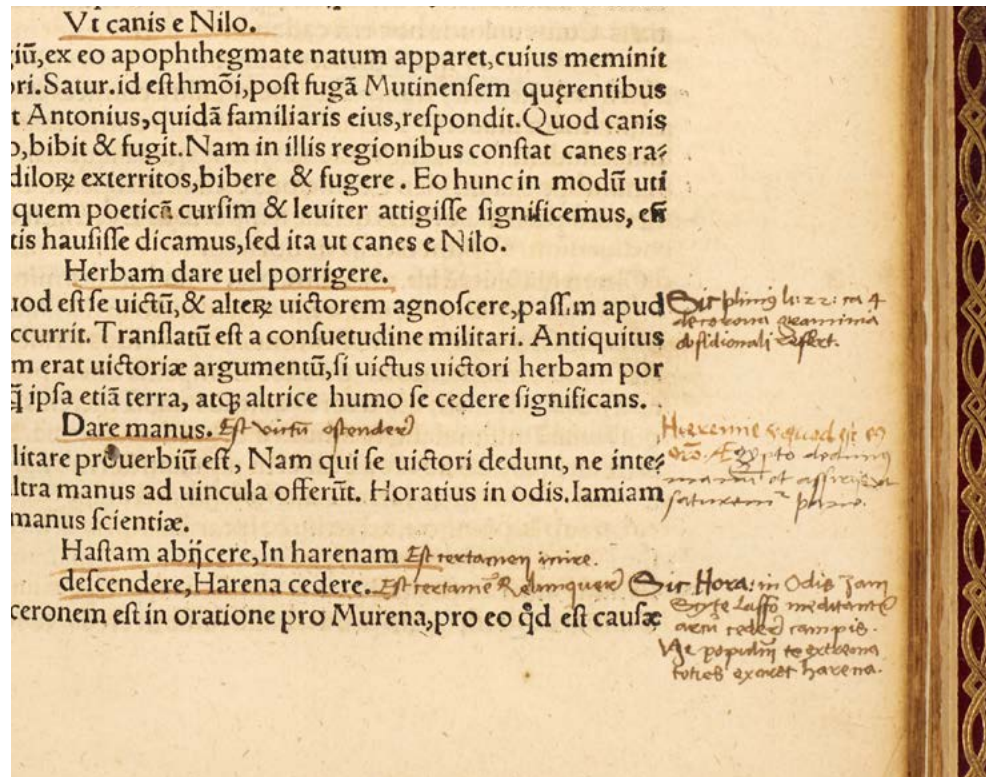 Vt canis e Nilo.
giũ,ex eo apophthegmate natum apparet,cuius meminit
ori.Satur.id eſt hmõi,poſt fugã Mutinenſem quęrentibus
t Antonius,quidã familiaris eius,reſpondit.Quod canis
o,bibit & fugit.Nam in illis regionibus conſtat canes ra⸗
dilorꝝ exterritos,bibere & fugere. Eo hunc in modũ uti
quem poeticã curſim & leuiter attigiſſe ſignificemus,
tis hauſiſſe dicamus,ſed ita ut canes e Nilo.
Herbam dare uel porrigere.
uod eſt ſe uictũ,& alterꝝ uictorem agnoſcere,paſſim apud
ccurrit. Tranſlatũ eſt a conſuetudine militari. Antiquitus
m erat uictoriæ argumentũ,ſi uictus uictori herbam por
q̃ ipſa etiã terra, atqꝫ altrice humo ſe cedere ſignificans.
Sic plinius li: 22: ca 4
de corona graminea
obſidionali refert.
Dare manus. Eſt victũ oſtendere
litare prouerbiũ eſt, Nam qui ſe uictori dedunt, ne inte⸗
ltra manus ad uincula offerũt. Horatius in odis.Iamiam
manus ſcientiæ.
quod eſt
Ægypto dedimus
manũ et aſſirijs ut
ſaturemur pane.
Haſtam abijcere,In harenam Eſt certamen inire.
deſcendere,Harena cedere. Eſt certamẽ Relinquere
ceronem eſt in oratione pro Murena,pro eo qd̓ eſt cauſæ
Sic Hora: in Odis Jam
laſſo
cedere campis.
Ne populũ extrema
toties exoret harena.